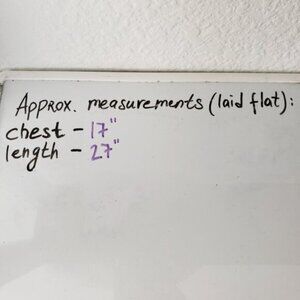 Approx. measurements (laid flat):
chest - 17"
length - 27"